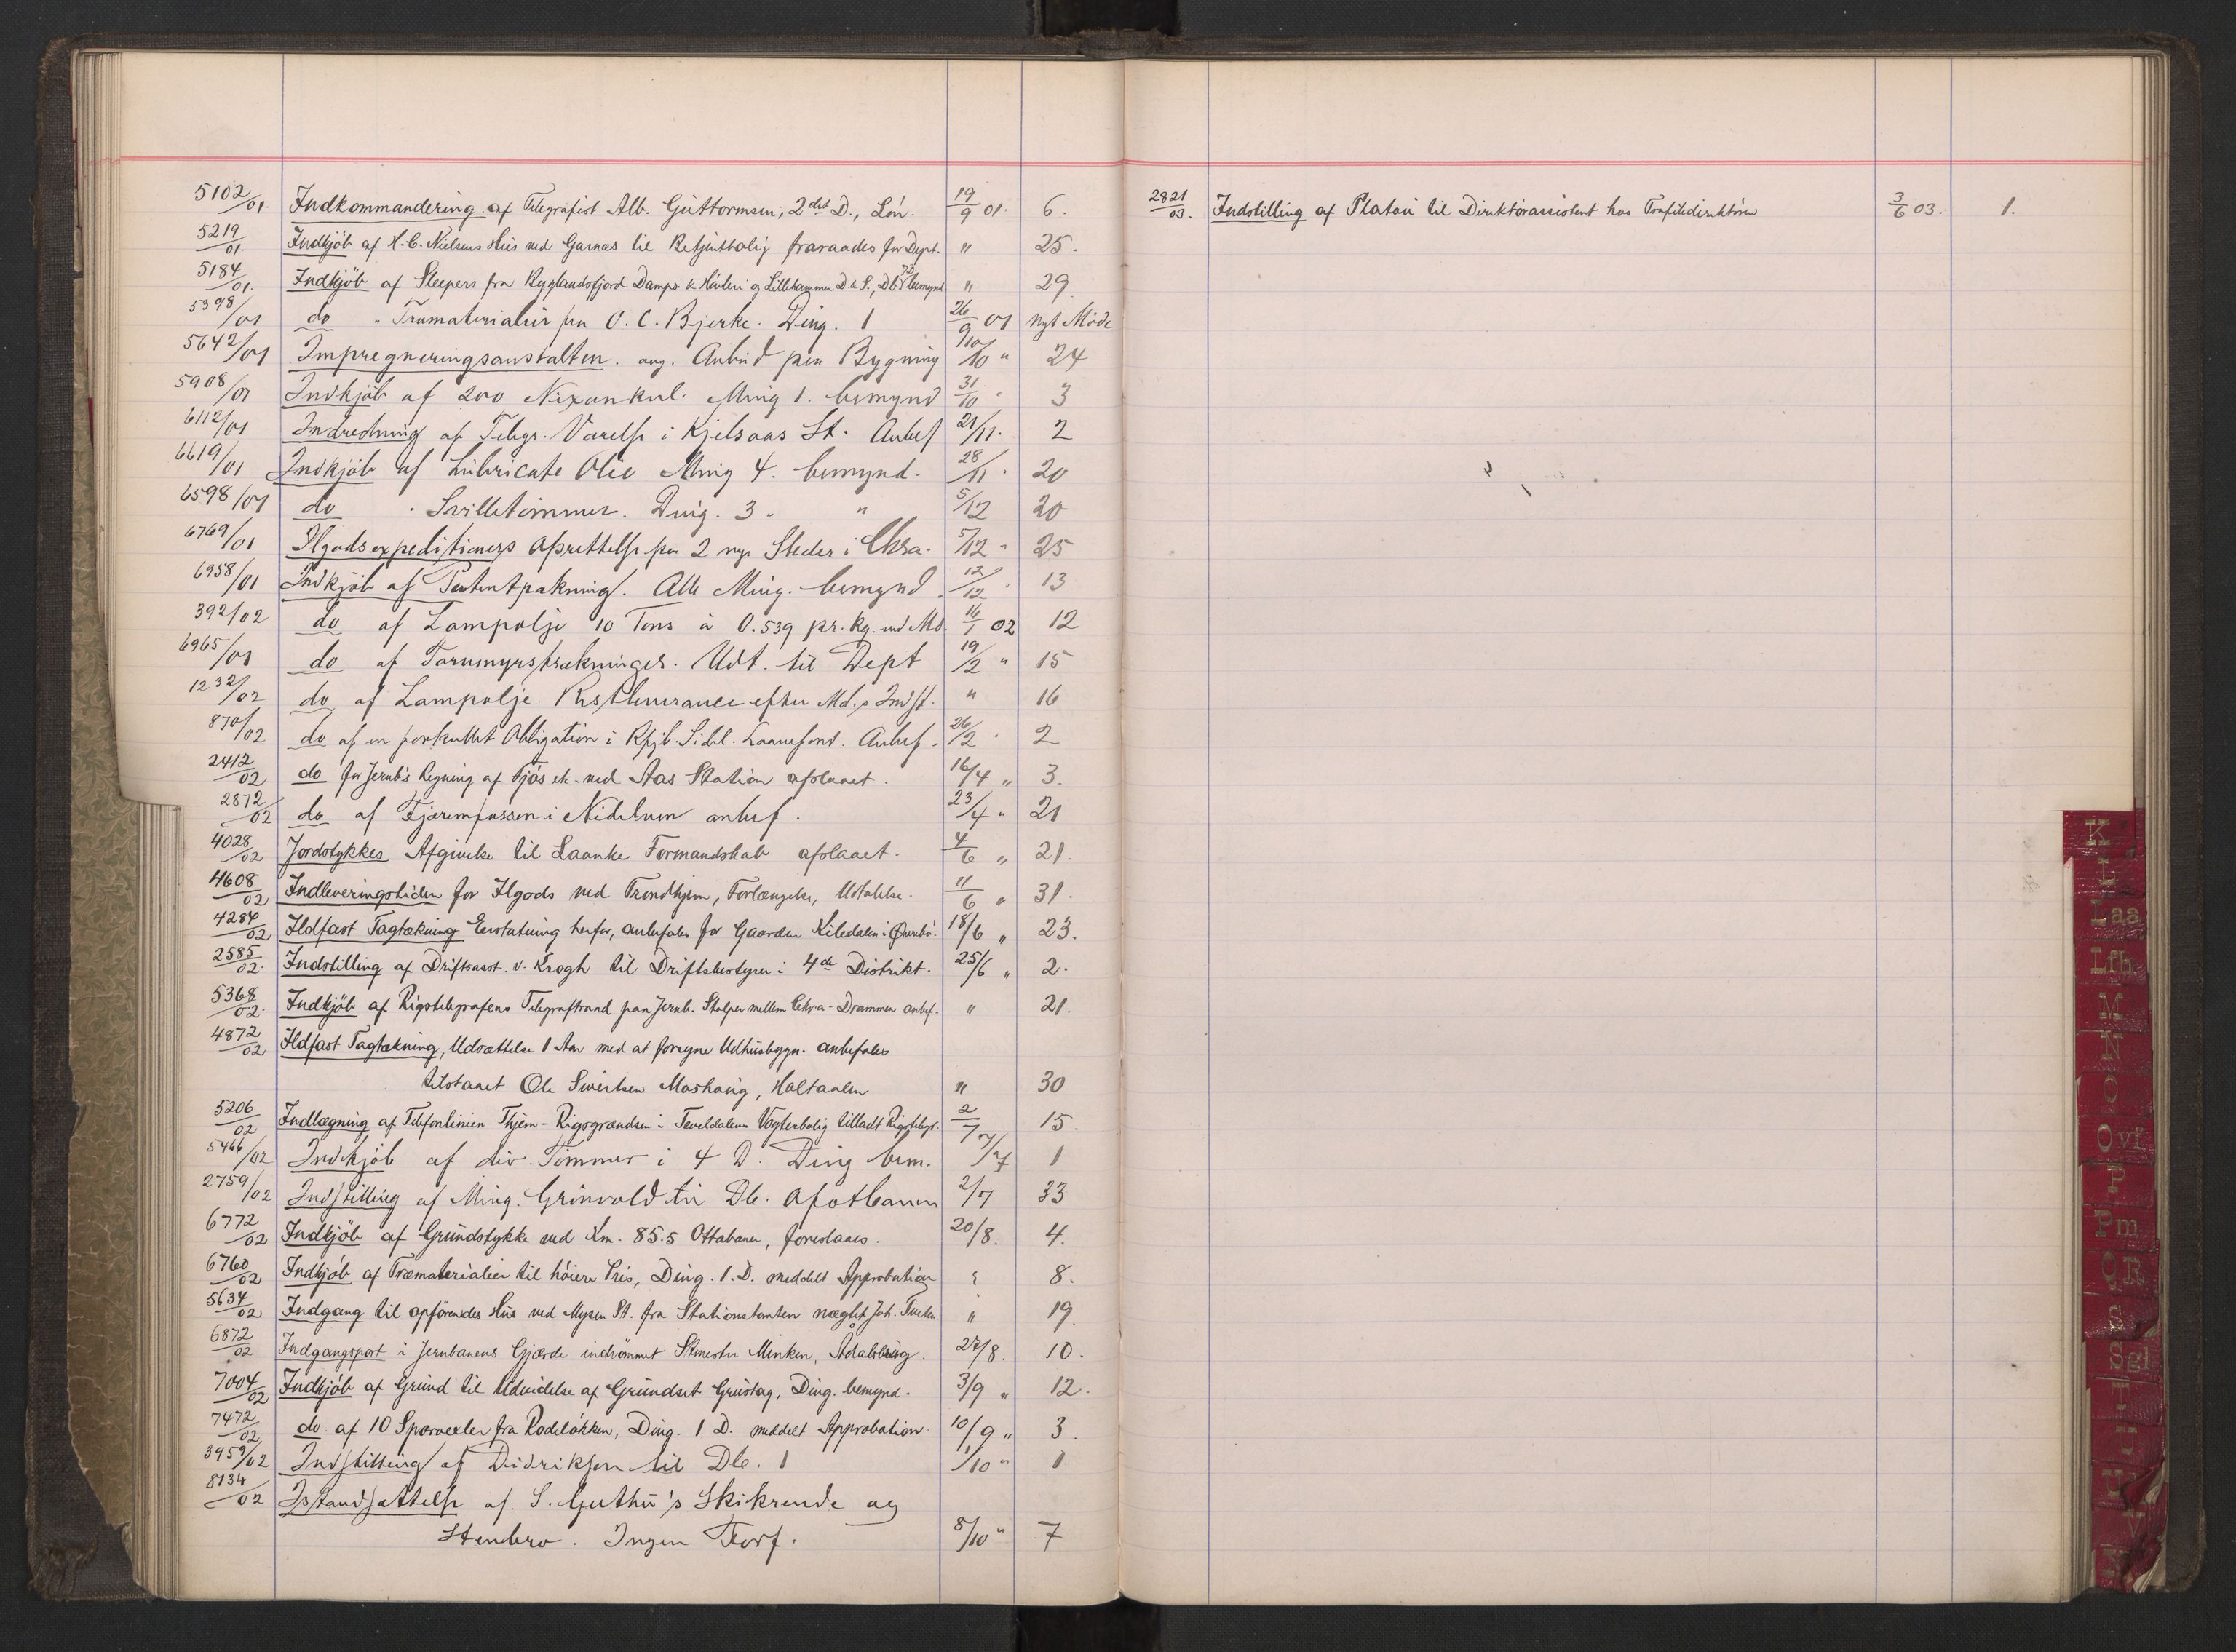 5102/01. Indkommandering af Telegrafist Alb. Guttormsen, 2det D., Lön. 19/9 01. 6.
5219/01 Indkjöb af H. C. Nielsens Hus ved Garnæs til Betjentbolig fraraades for Dept. " 25.
5184/01. Indkjöb af Sleepers fra Ryglandsfjord Damps & Hövleri og Lillehammer D & S., bemynd " 29
5398/01 do " Træmaterialier fra O. C. Bjerke. Ding. 1 26/9 01 nyt Möde
5642/01 Impregneringsanstalten. ang. Anbud paa Bygning 10/10 " 24
5908/01 Indkjöb af 200 Ming 1. bemynd 31/10 " 3
6112/01 Indredning af Telegr. Værelse i Kjelsaas St. Anbef 21/11. 2
6619/01 Indkjöb af Lubricate Olie Ming 4. bemynd. 28/11 " 20
6598/01 do " Svilletömmer. Ding. 3 " " 5/12 20
6769/01 Ilgodsexpeditioners Oprettelse paa 2 nye Steder i Chra. 5/12 " 25
6958/01 Indkjöb af Patentpakning. Alle Ming. bemynd. 12/12 " 13
392/02 do af Lampolje 10 Tons à 0.539 pr. Kg. ved Md. 16/1 02 12
6965/01 do af Udt. til Dept 19/2 " 15
1232/02 do af Lampolje. efter Md.s Indst. " 16
870/02 do af en forkullet Obligation i Laanefond. Anbef. 26/2 " 2
2412/02 do for Jernb's Regning af Fjös etc. ved Aas Station afslaaet. 16/4 " 3.
2872/02 do af Fjæremfossen i Nidelven anbef. 23/4 " 21
4028/02 Jordstykkes Afgivelse til Laanke Formandskab afslaaet. 4/6 " 21.
4608/02 Indleveringstiden for Ilgods ved Trondhjem, Forlængelse, Udtalelse. 11/6 " 31.
4284/02 Ildfast Tagtækning Erstatning herfor, anbefales for Gaarden Liledalen i 18/6 " 23.
2585/02. Indstilling af Driftsasst. v. Krogh til Driftsbestyrer i 4de Distrikt. 25/6 " 2.
5368/02. Indkjöb af Rigstelegrafens Telegraftraad paa Jernb. Stolper mellem Chra - Drammen anbef. " 21.
4872/02 Ildfast Tagtækning, Udsættelse 1 Aar med at forsyne Udhusbygn. anbefales
tilstaaet Ole Sivertsen Moshaug, Holtaalen " 30
5206/02 Indlægning af Telefonlinien Thjem - Rigsgrændsen i Teveldalens Vogterbolig tilladt Rigstelegr. 2/7 15.
5466/02 Indkjöb af div. Tömmer i 4 D. Ding bem. 2/7 1
2759/02 Indstilling af Ming. Grinvold til Db. Ofotbanen 2/7 33
6772/02 Indkjöb af Grundstykke ved Km. 85.5 Ottabanen, foreslaaes. 20/8. 4.
6760/02 Indkjöb af Træmaterialier til höiere Pris, Ding. 1. D. meddelt Approbation " 8.
5634/02 Indgang til opförendes Hus ved Mysen St. fra Stationstomten nægtet Joh. " 19.
6872/02 Indgangsport i Jernbanens Gjærde indrömmet Stenester Minken, Ådalsbrug. 27/8. 10.
7004/02 Indkjöb af Grund til Udvidelse af Grundset Grustag, Ding. bemynd. 3/9 " 12.
7472/02 do af 10 Sporvexler fra Rodelökken, Ding. 1 D. meddelt Approbation. 10/9 " 3.
3959/02 Indstilling af Didriksen til Db. 1 1/10 " 1
8134/02 Istandsættelse af S. Guthu's Skikrende og
Stenbro. Ingen Forf. 8/10 " 7
2821/03. Indstilling af Platou til Direktörassistent hos Trafikdirektören 3/6 03. 1.
K
L
Laa
Lfh
M
N
O
Ovf
P
Pm
QR
S
Sgl
T